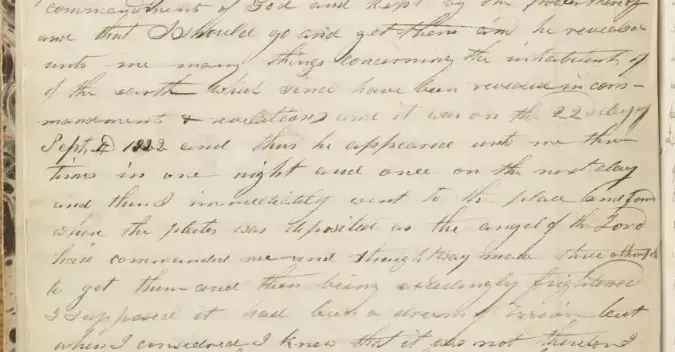 commandments of God and kept by the power thereof
and that I should go and get them and he revealed
unto me many things concerning the inhabitents of
of the earth which since have been revealed in com-
mandments & revelations and it was on the 22d day of
Sept. AD 1822 and thus he appeared unto me three
times in one night and once on the next day
and then I immediately went to the place and found
where the plates was deposited as the angel of the Lord
had commanded me and straightway made three attempts
to get them and then being excedingly frightened
I supposed it had been a dreem of Vision but
when I considred I knew that it was not therefore I